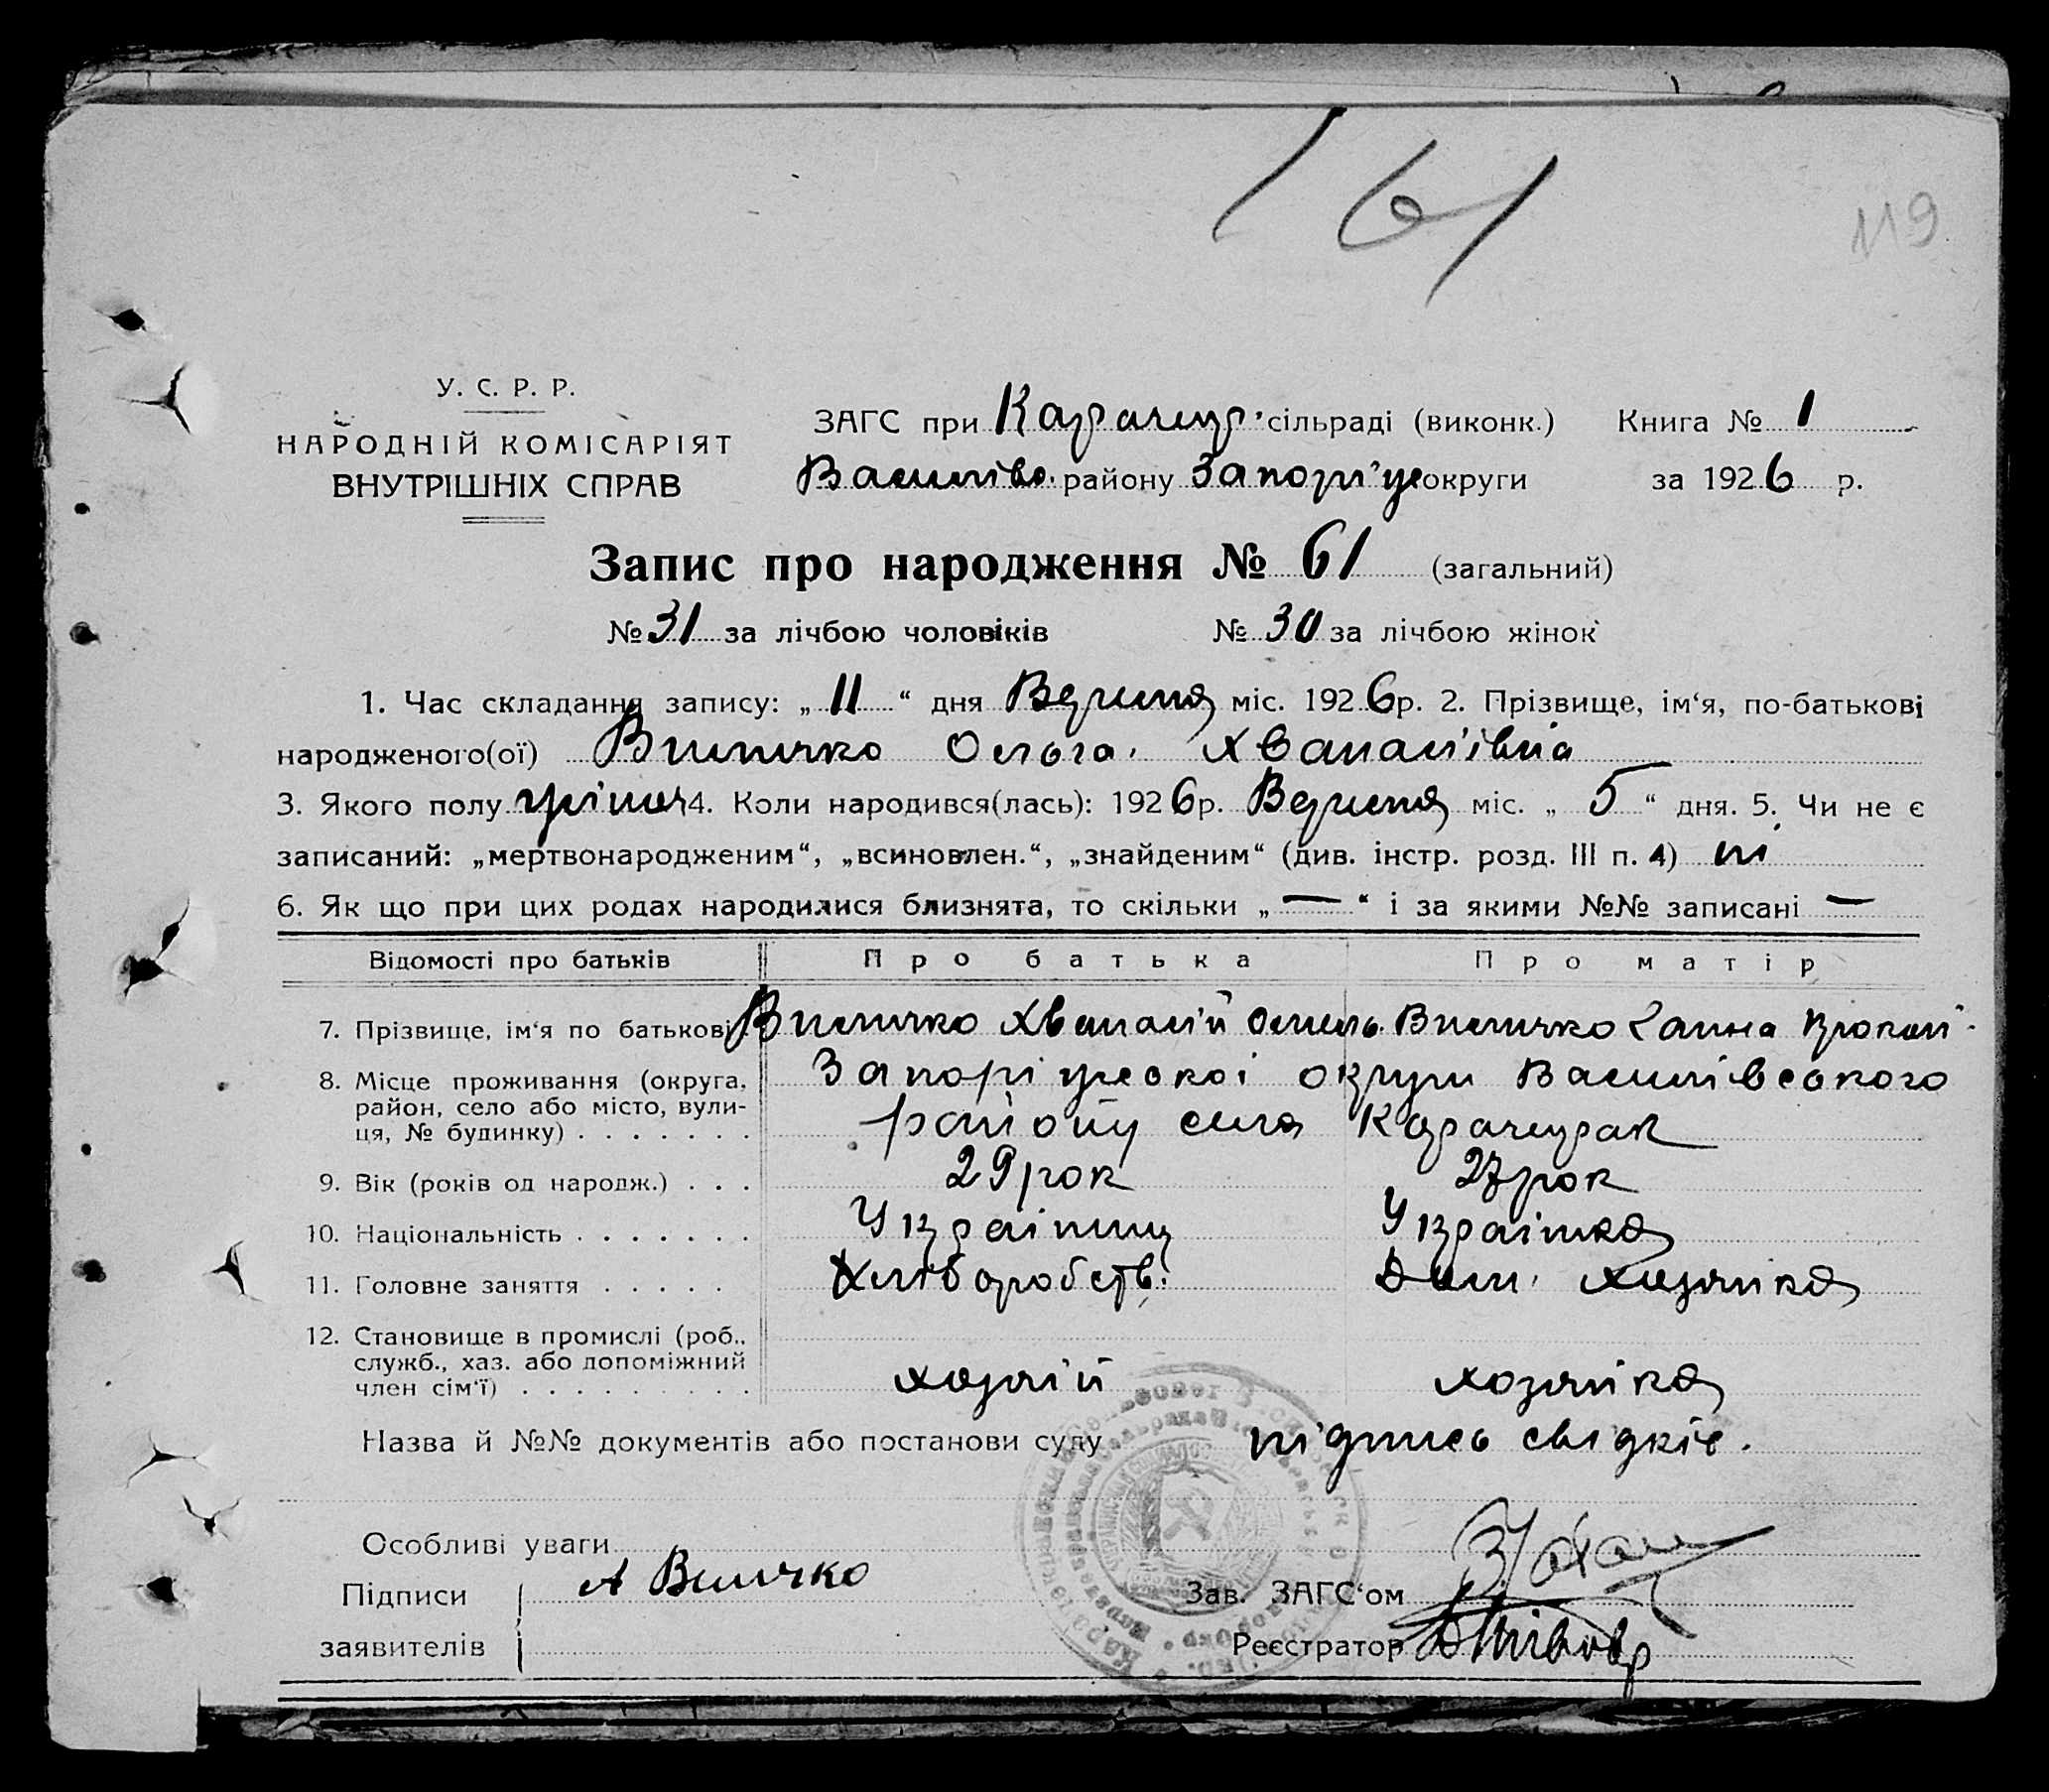 161
119
У. С. Р. Р.
НАРОДНІЙ КОМІСАРІЯТ
ВНУТРІШНІХ СПРАВ
ЗАГС при Карачекр. сільраді (виконк.) Книга № 1
Василівс. району Запоріж округи за 1926 р.
Запис про народження № 61 (загальний)
№ 31 за лічбою чоловіків № 30 за лічбою жінок
1. Час складання запису: „ 11 “ дня міс. 1926 р. 2. Прізвище, ім‘я, по-батькові
народженого(ої) Ольга Хванасіївна
3. Якого полу жіноч 4. Коли народився(лась): 1926 р. міс. „ 5 “ дня. 5. Чи не є
записаний: „мертвонародженим“, „всиновлен.“, „знайденим“ (див. інстр. розд. III п. 4) ні
6. Як що при цих родах народилися близнята, то скільки „ — “ і за якими №№ записані —
Відомості про батьків Про батька Про матір
7. Прізвище, ім‘я по батькові Хванасій Омель. Ганна Прокоп.
8. Місце проживання (округа, Запоріжської округи Василівського
район, село або місто, вули-
ця, № будинку) . . . . . . . району села Карачекрак
9. Вік (років од народж.) . . . 29 рок 27 рок
10. Національність . . . . . . . Українец Українка
11. Головне заняття . . . . . Хліборобств. Дом. хозяйка
12. Становище в промислі (роб.,
служб., хаз. або допоміжний
член сім‘ї) . . . . . . . . . хозяїй хозяйка
Назва й №№ документів або постанови суду підпись свідків.
Особливі уваги
Підписи А Зав. ЗАГС‘ом
заявителів Реєстратор